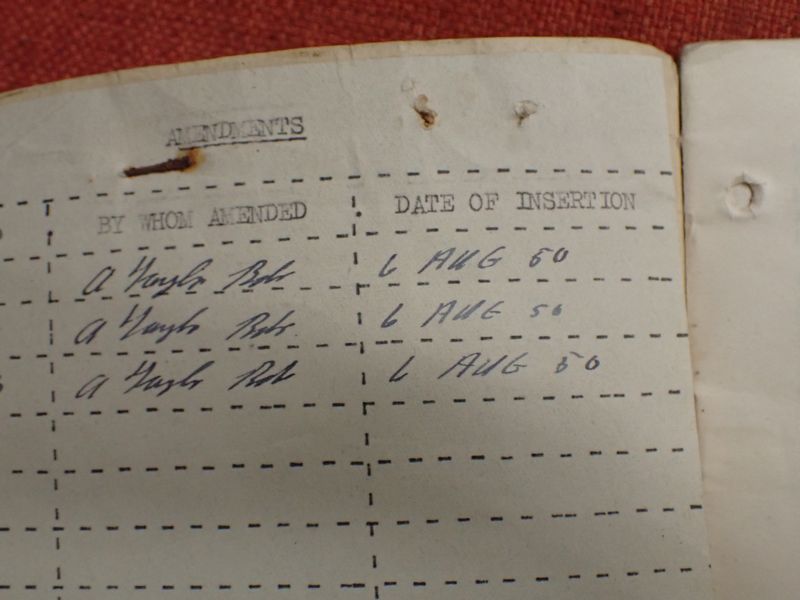 AMENDMENTS
BY WHOM AMENDED . DATE OF INSERTION
A Taylor 6 AUG 50
A Taylor 6 AUG 50
A Taylor 6 AUG 50